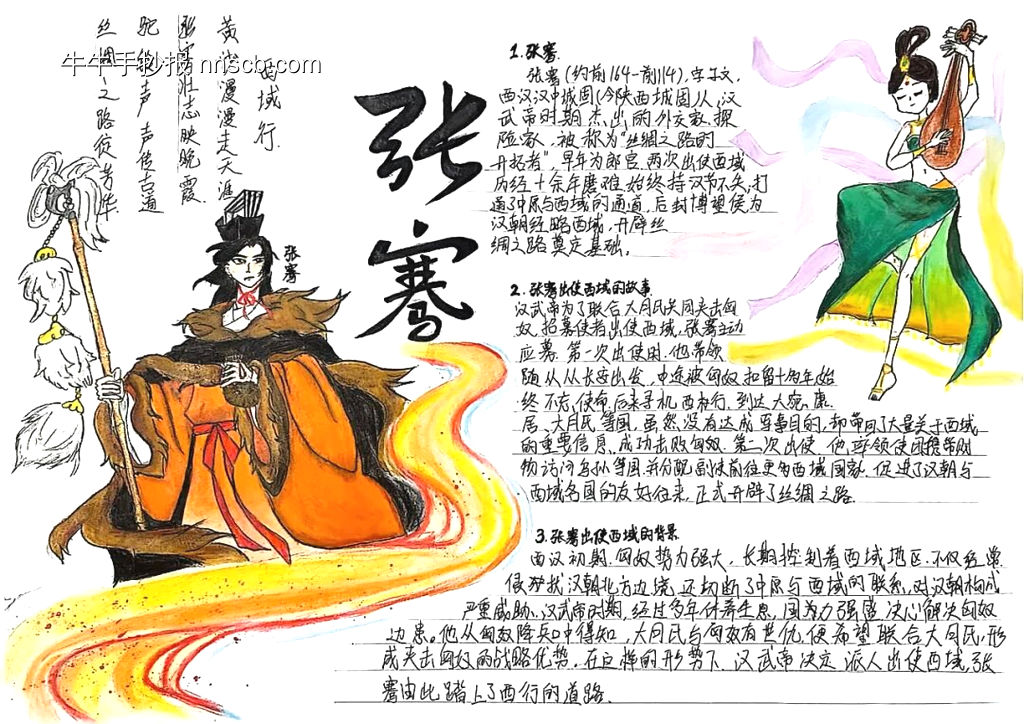 西域行
黄沙漫漫走天涯
张骞壮志映晚霞
驼铃声声传古道
丝绸之路夜芳华
牛牛手抄报 nnscb.com
张骞
张骞
1.张骞.
张骞(约前164-前114),字子文,
西汉汉中城固(今陕西城固人,汉
武帝时期杰出的外交家、探
险家,被称为“丝绸之路的
开拓者”,早年为郎官,两次出使西域
历经十余年磨难,始终持汉节不失,打
通了中原与西域的通道,后封博望侯为
汉朝经略西域,开辟丝
绸之路奠定基础。
2.张骞出使西域的故事
汉武帝为了联合大月氏共同夹击匈
奴,招募使者出使西域,张骞主动
应募.第一次出使用,他带领
随从从长安出发,中途被匈奴扣留十多年,始
终不忘使命,后来寻机西行.到达大宛、康
居、大月氏等国,虽然没有达成军事目的,却带回了大量关于西域
的重要信息,成功击败匈奴.第二次出使,他率领使团携带财
物访问乌孙等国,并分配副使前往更多西域国家,促进了汉朝与
西域各国的友好往来,正式开辟了丝绸之路.
3.张骞出使西域的背景
西汉初期,匈奴势力强大,长期控制着西域地区.不仅经常
侵扰我汉朝北方边境,还切断了中原与西域的联系,对汉朝构成
严重威胁.汉武帝时期,经过多年休养生息,国力强盛,决心解决匈奴
边患。他从匈奴降兵口中得知,大月氏与匈奴有世仇,便希望联合大月氏,形
成夹击匈奴的战略优势.在这样的形势下,汉武帝决定派人出使西域,张
骞由此踏上了西行的道路.